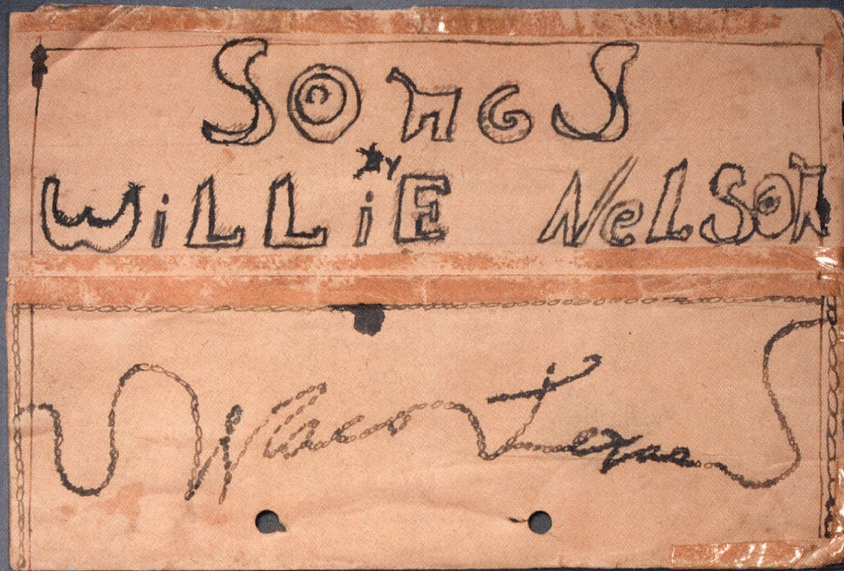 SONGS
BY
WiLLiE NeLSON
Waco Texas